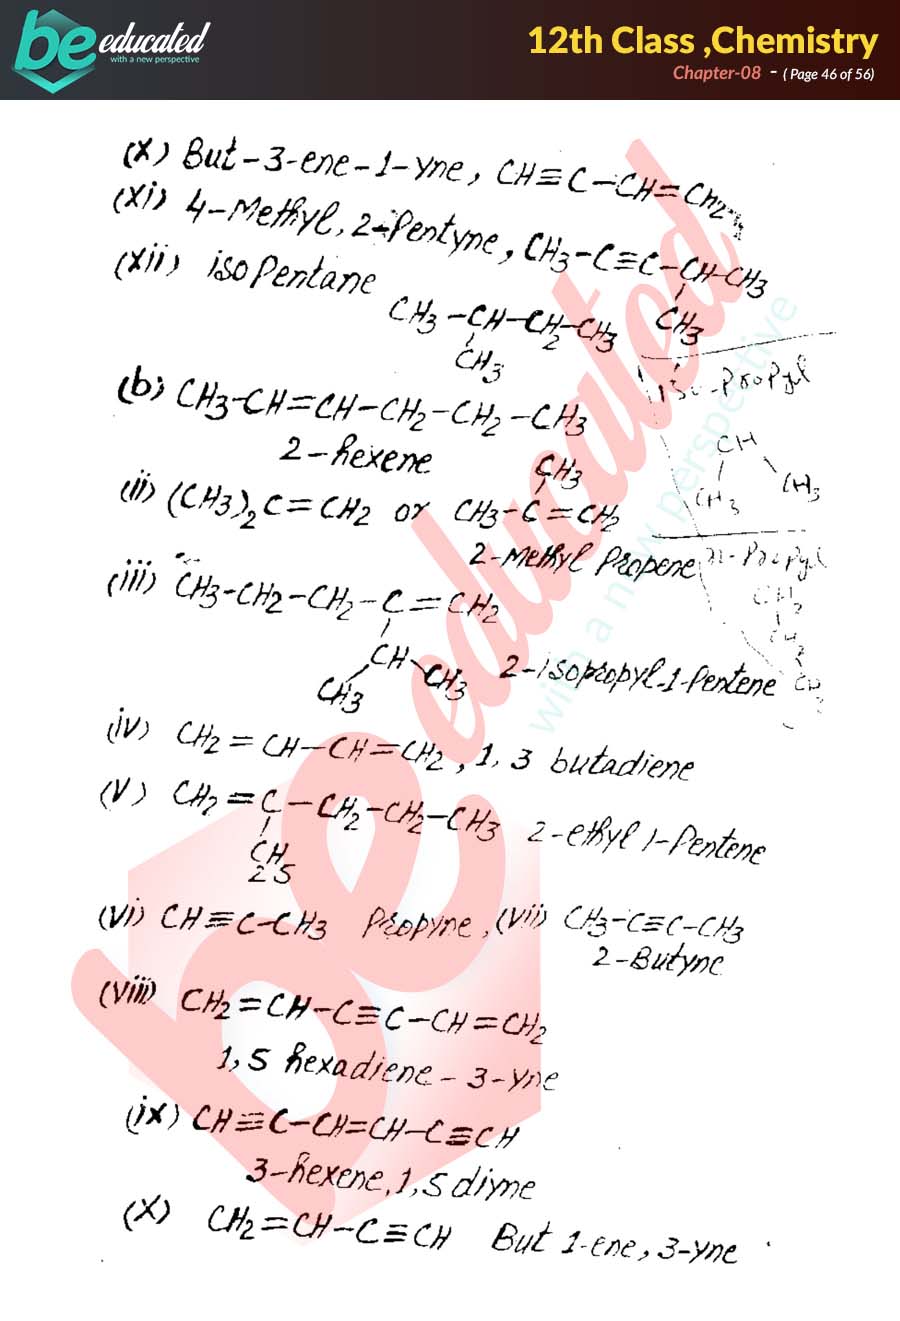 be educated
with a new perspective
12th Class ,Chemistry
Chapter-08 - ( Page 46 of 56)
(x) But-3-ene-1-yne, CH≡C-CH=CH2
(xi) 4-Methyl, 2-Pentyne, CH3-C≡C-CH-CH3
CH3
(xii) isoPentane
CH3-CH-CH2-CH3
CH3
iso-Propyl
CH
CH3 CH3
(b) CH3-CH=CH-CH2-CH2-CH3
2-hexene
CH3
(ii) (CH3)2C=CH2 or CH3-C=CH2
2-Methyl Propene
n-Propyl
CH2
CH2
CH3
(iii) CH3-CH2-CH2-C=CH2
CH
CH3 CH3
2-isopropyl-1-Pentene
(iv) CH2=CH-CH=CH2, 1, 3 butadiene
(v) CH2=C-CH2-CH2-CH3 2-ethyl 1-Pentene
CH
2 5
(vi) CH≡C-CH3 Propyne, (vii) CH3-C≡C-CH3
2-Butyne
(viii) CH2=CH-C≡C-CH=CH2
1, 5 hexadiene-3-yne
(ix) CH≡C-CH=CH-C≡CH
3-hexene, 1, 5 diyne
(x) CH2=CH-C≡CH But 1-ene, 3-yne
be educated
with a new perspective